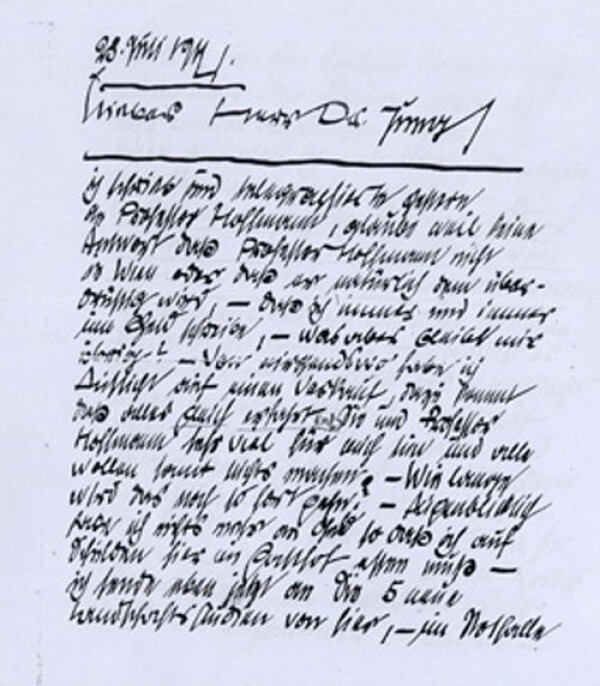 28. Juli 1911.
Lieber Herr Dr. Jung
ich schrieb und telegraphierte gestern
an Professor Hoffmann, glaube weil keine
Antwort dass Professor Hoffmann nicht
in Wien oder dass er natürlich dem über-
drüssig wird, – dass ich immer und immer
um Geld schreibe, – was aber bleibt mir
übrig? – Von nirgendswo habe ich
Aussicht auf einen Verkauf, dazu kommt
dass alles auch erfahrt Sie und Professor
Hoffmann sehr viel für mich tun und alle
wollen somit nichts machen? – Wie lange
wird das noch so fort gehn? – Augenblicklich
habe ich nichts mehr an Geld so dass ich auf
Schulden hier im Gasthof essen muss –
ich sende eben jetzt an die 5 neue
Landschafts Studien von hier, – im Notfalle